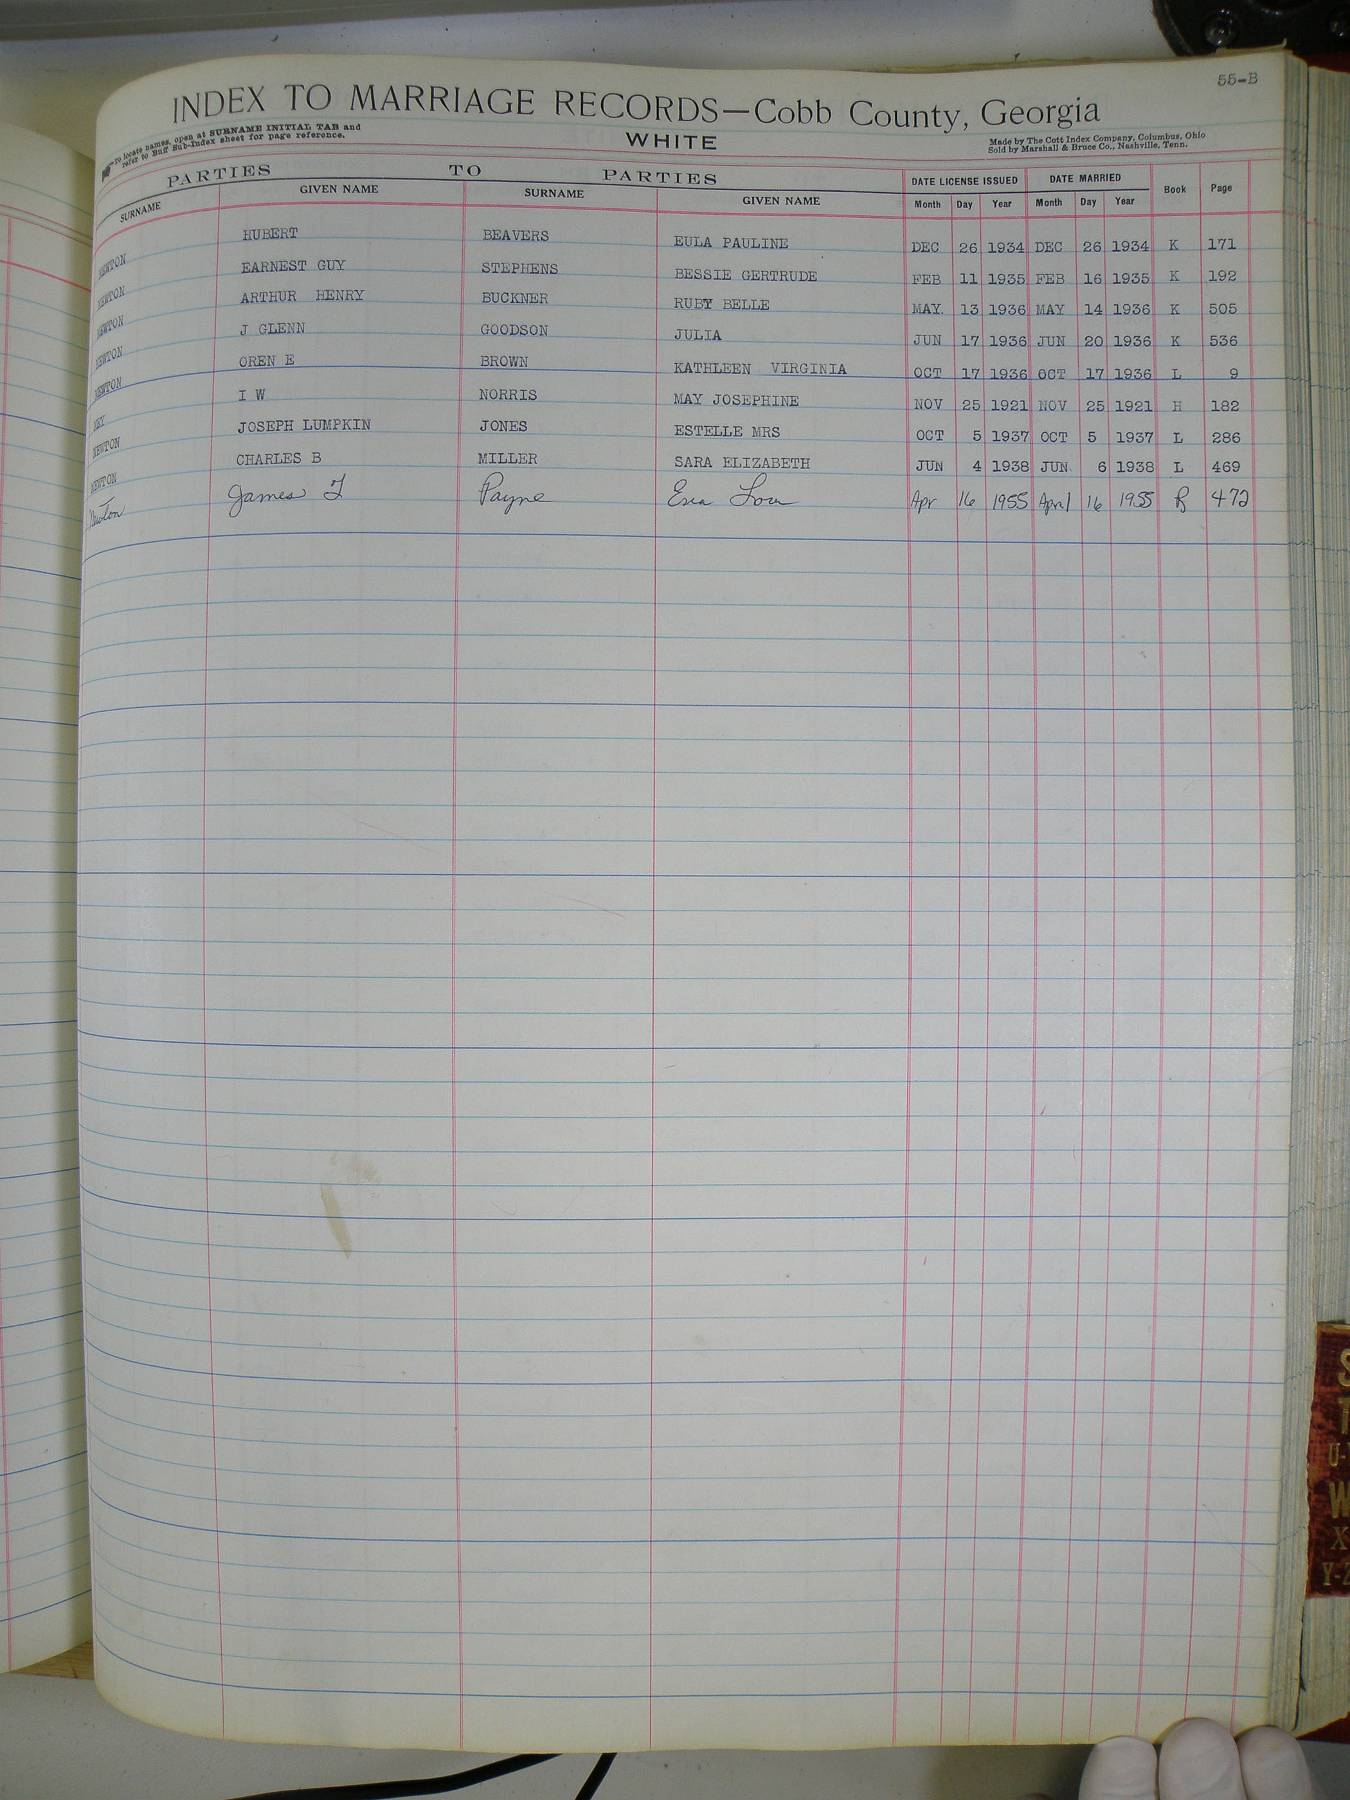 55-B
INDEX TO MARRIAGE RECORDS—Cobb County, Georgia
To locate names, open at SURNAME INITIAL TAB and
refer to Buff Sub-Index sheet for page reference.
WHITE
Made by The Cott Index Company, Columbus, Ohio
Sold by Marshall & Bruce Co., Nashville, Tenn.
PARTIES TO PARTIES DATE LICENSE ISSUED DATE MARRIED Book Page
SURNAME GIVEN NAME SURNAME GIVEN NAME Month Day Year Month Day Year
NEWTON HUBERT BEAVERS EULA PAULINE DEC 26 1934 DEC 26 1934 K 171
NEWTON EARNEST GUY STEPHENS BESSIE GERTRUDE FEB 11 1935 FEB 16 1935 K 192
NEWTON ARTHUR HENRY BUCKNER RUBY BELLE MAY. 13 1936 MAY 14 1936 K 505
NEWTON J GLENN GOODSON JULIA JUN 17 1936 JUN 20 1936 K 536
NEWTON OREN E BROWN KATHLEEN VIRGINIA OCT 17 1936 OCT 17 1936 L 9
NEY I W NORRIS MAY JOSEPHINE NOV 25 1921 NOV 25 1921 H 182
NEWTON JOSEPH LUMPKIN JONES ESTELLE MRS OCT 5 1937 OCT 5 1937 L 286
NEWTON CHARLES B MILLER SARA ELIZABETH JUN 4 1938 JUN 6 1938 L 469
Newton James T Payne Eva Lou Apr 16 1955 April 16 1955 R 472
S
T
U-
W
X
Y-Z